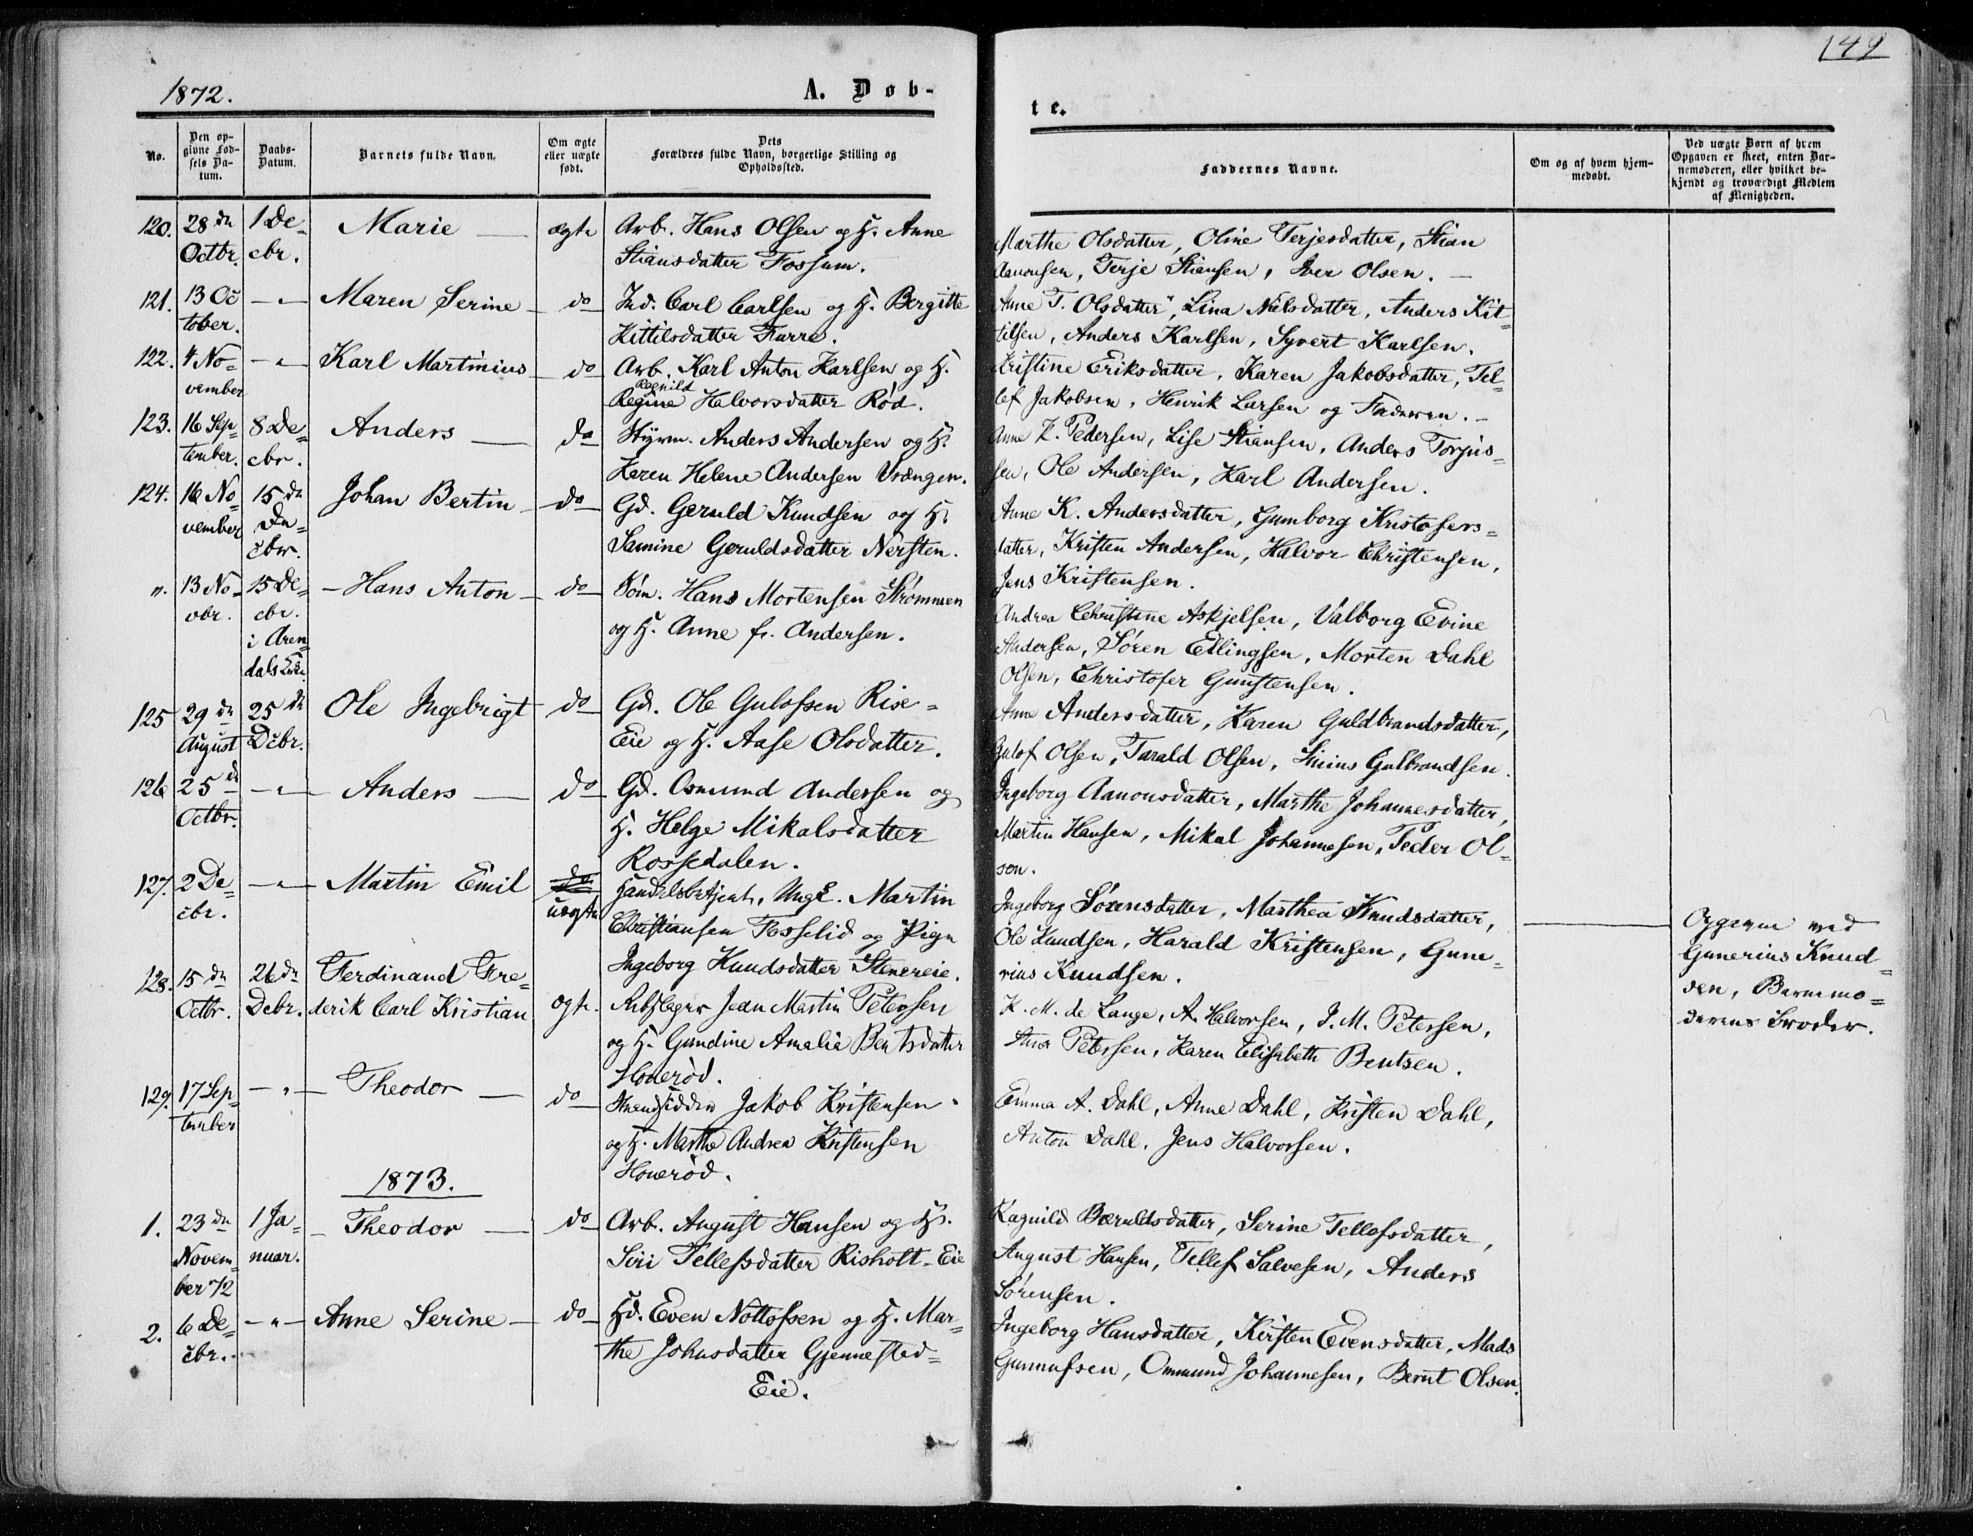 149
1872.
A. Døb-
te.
No.
Den op-
givne Fød-
sels Da-
tum.
Daabs-
Datum.
Barnets fulde Navn.
Om ægte
eller uægte
født.
Dets
Forældres fulde Navn, borgerlige Stilling og
Opholdssted.
Faddernes Navne.
Om og af hvem hjem-
medøbt.
Ved uægte Born af hvem
Opgaven er skeet, enten Bar-
nemoderen, eller hvilket be-
kjendt og troværdigt Medlem
af Menigheden.
120. 28de 1 De- Marie — ægte Arb. Hans Olsen og H. Anne
Octbr. cbr. Stiansdatter Fossum.
Marthe Olsdatter, Oline Terjesdatter, Stian
Aanonsen, Terje Stiansen, Iver Olsen. —
121. 13 Oc — " — Maren Serine — do Ind. Carl Carlsen og H. Bergitte
tober. Kittilsdatter Farre.
Anne T. Olsdatter, Lina Nielsdatter, Anders Kit-
tilsen, Anders Karlsen, Syvert Karlsen.
122. 4 No- — " — Karl Martinius — do Arb. Karl Anton Karlsen og H.
vember Ragnild
Regine Halvorsdatter Rød.
Kristine Eriksdatter, Karen Jakobsdatter, Tel-
lef Jakobsen, Henrik Larsen og Faderen. —
123. 16 Sep- 8 De- Anders — do Styrm. Anders Andersen og H.
tember. cbr. Karen Helene Andersen Vrængen.
Anne K. Pedersen, Lise Stiansen, Anders Torjus-
sen, Ole Andersen, Karl Andersen.
124. 16 No- 15de Johan Bertin — do Gd. Geruld Knudsen og H.
vember De- Samine Geruldsdatter Nersten.
cbr.
Anne K. Andersdatter, Gumborg Kristofers-
datter, Kristen Andersen, Halvor Christensen,
Jens Kristensen.
". 13 No- 15 De- — Hans Anton — do Søm. Hans Mortensen Strømmen
vbr. cbr. og H. Anne f. Andersen.
i Aren-
dals
Andrea Christine Askjelsen, Valborg Evine
Andersen, Søren Ellingsen, Morten Dahl
Olsen, Christofer Gunstensen.
125 29de 25de Ole Ingebrigt do Gd. Ole Gulofsen Rise-
August Dcbr. Eie og H. Aase Olsdatter.
Anne Andersdatter, Karen Guldbrandsdatter,
Gulof Olsen, Tarald Olsen, Sinius Gulbrandsen.
126 25de — " — Anders — do Gd. Osmund Andersen og
Octbr. H. Helge Mikalsdatter
Rossedalen.
Ingeborg Aanonsdatter, Marthe Johannesdatter,
Martin Hansen, Mikal Johannesen, Peder Ol-
sen.
127. 2 De- — " — Martin Emil do Handelsbetjent, Ungk. Martin
cbr. uægte Christiansen Fosselid og Pige
Ingeborg Knudsdatter Stenereie.
Ingeborg Sørensdatter, Marthea Knudsdatter,
Ole Knudsen, Harald Kristensen, Gune-
rius Knudsen.
Opgivne ved
Gunerius Knud-
sen, Barnemo-
derens Broder.
128. 15de 26de Ferdinand Fre-
Octbr. Dcbr. derik Carl Kristian ægte. Jean Martin Petersen
og H. Gundine Amalia Bentsdatter
Honerød.
K. M. de Lange, A. Halvorsen, J. M. Petersen,
Anna Petersen, Karen Elisabeth Bentsen.
129. 17 Sep- — " — Theodor — do Strandsidder Jakob Kristensen
tember og H. Marthe Andrea Kristensen
Honerød.
Emma A. Dahl, Anne Dahl, Kristen Dahl,
Anton Dahl, Jens Halvorsen.
1873.
1. 23de 1 Ja- — Theodor — do Arb. August Hansen og H.
Novem- nuar. Siri Tellefsdatter Risholt-Eie
ber 72
Ragnild Bæruldsdatter, Serine Tellefsdatter,
August Hansen, Tellef Salvesen, Anders
Sørensen.
2. 6 De- — " — Anne Serine — do Hd. Even Nottofsen og H. Mar-
cbr. the Johnsdatter Gjennested-
Eie.
Ingeborg Hansdatter, Kirsten Evensdatter, Mads
Gunnufsen, Ommund Johannesen, Bernt Olsen.